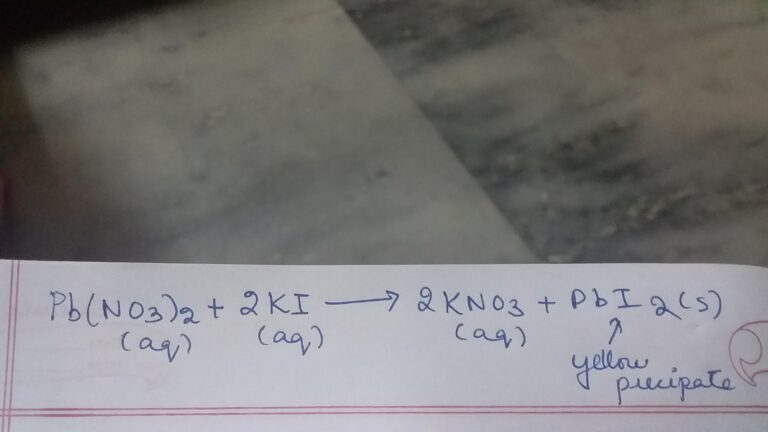 Pb(NO3)2 + 2KI ⟶ 2KNO3 + PbI2(s)
(aq) (aq) (aq) ↑
yellow
precipate